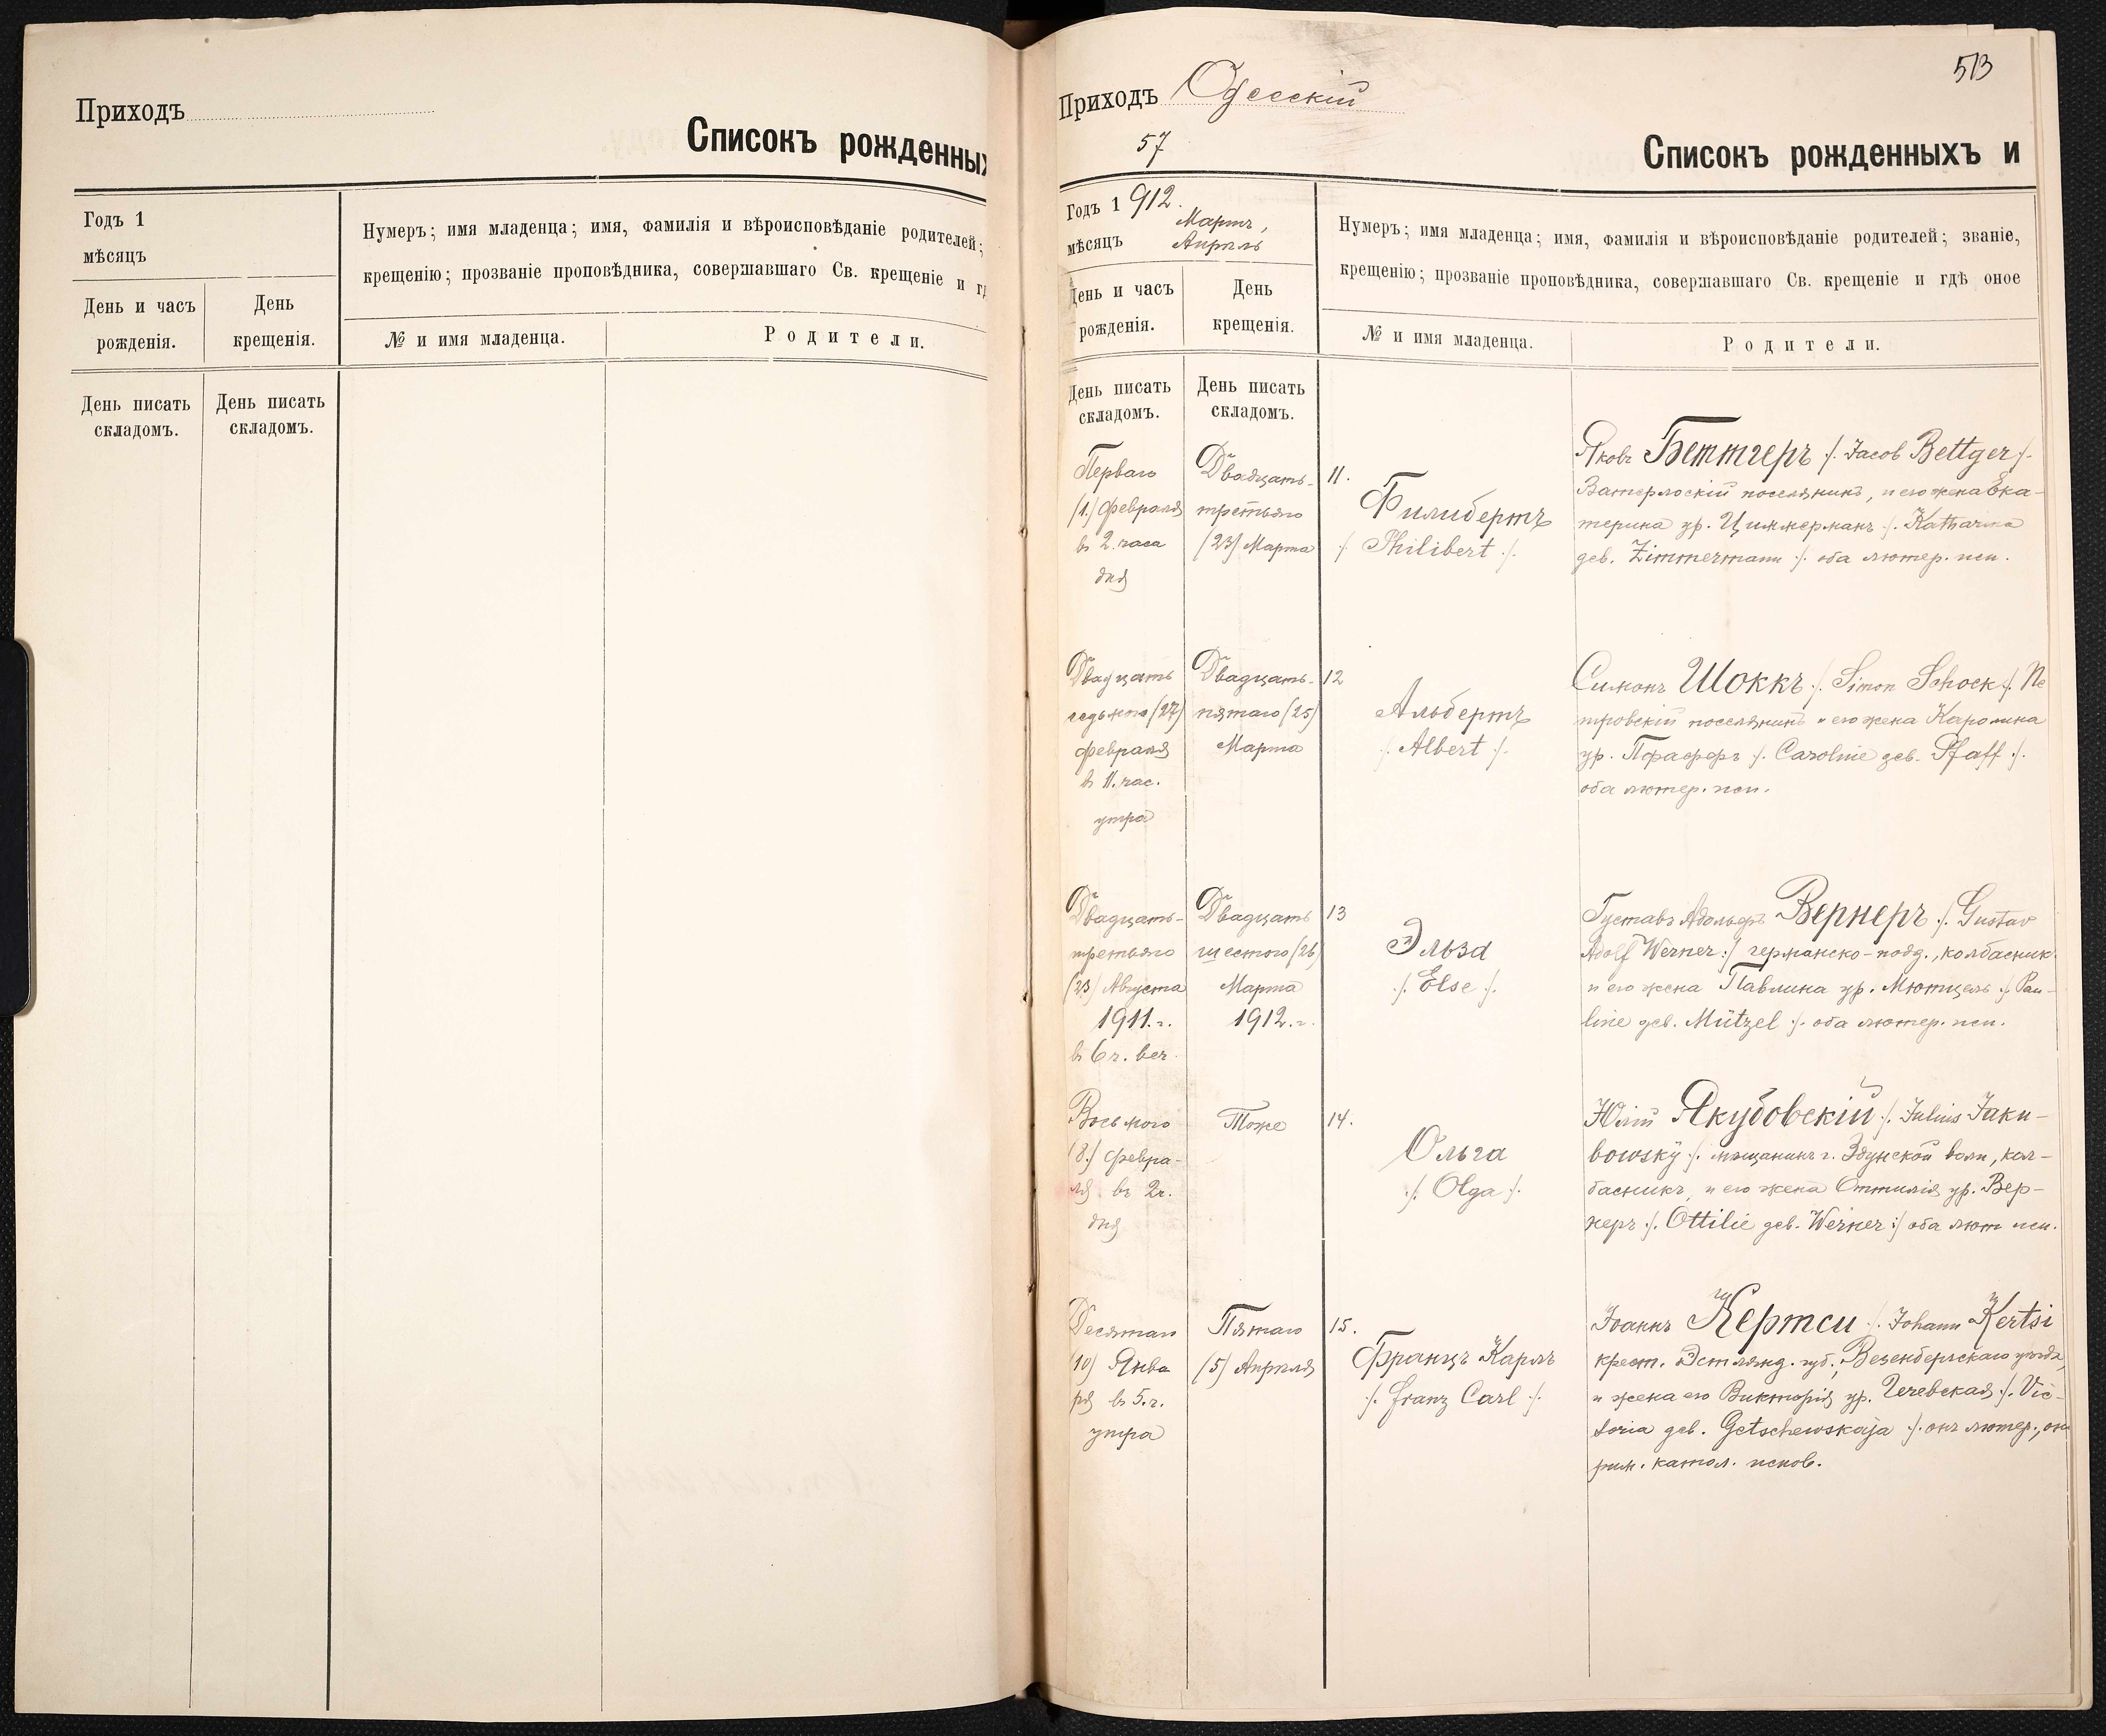 Приходъ
Списокъ рожденных
Годъ 1
мѣсяцъ
Нумеръ; имя младенца; имя, фамилія и вѣроисповѣданіе родителей;
крещенію; прозваніе проповѣдника, совершавшаго Св. крещеніе и г
День и часъ
рожденія.
День
крещенія.
№ и имя младенца.
Родители.
День писать
складомъ.
День писать
складомъ.
513
Приходъ Одесскій
57
Списокъ рожденныхъ и
Годъ 1912.
мѣсяцъ Мартъ,
Апрѣль
Нумеръ; имя младенца; имя, фамилія и вѣроисповѣданіе родителей; званіе,
крещенію; прозваніе проповѣдника, совершавшаго Св. крещеніе и гдѣ оное
День и часъ
рожденія.
День
крещенія.
№ и имя младенца.
Родители.
День писать
складомъ.
День писать
складомъ.
Перваго
(1.) Февраля
въ 2. часа
дня
Двадцать-
третьяго
(23) Марта
11.
Филибертъ
/. Philibert ./.
Яковъ Беттгеръ /. Jacob Bettger /.
Ватерлоскій поселянинъ, и его жена Ека-
терина ур. Циммерманъ /. Katharina
geb. Zimmermann ./. оба лютер. исп.
Двадцать
седьмого (27)
Февраля
въ 11. час.
утра
Двадцать-
пятаго (25)
Марта
12
Альбертъ
/. Albert /.
Симонъ Шоккъ /. Simon Schock /. Пе
тровскій поселянинъ и его жена Каролина
ур. Пфаффъ /. Caroline geb. Pfaff ./.
оба лютер. исп.
Двадцать-
третьяго
(23) Августа
1911. г.
въ 6 ч. веч.
Двадцать
шестого (26)
Марта
1912. г.
13
Эльза
./. Else ./.
Густавъ Адольфъ Вернеръ ./. Gustav
Adolf Werner :/ германско-подд., колбасник
и его жена Павлина ур. Мютцель ./ Pau-
line geb. Mützel ./. оба лютер. исп.
Восьмого
(8.) Февра-
ля въ 2 ч.
дня
Тоже
14.
Ольга
./. Olga ./.
Юлій Якубовскій /. Julius Jaku-
bowsky ./. мѣщанинъ г. Здунской воли, кол-
басникъ, и его жена Оттилія ур. Вер-
неръ ./. Ottilie geb. Werner :/ оба лют исп.
Десятаго
(10) Янва
ря въ 5. ч.
утра
Пятаго
(5) Апрѣля
15.
Францъ Карлъ
./. Franz Carl ./.
Іоаннъ Кертси ./. Johann Kertsi
крест. Эстлянд. губ., Везенбергскаго уѣзда,
и жена его Викторія ур. Гечевская ./. Vic-
toria geb. Getschewskaja ./. онъ лютер., он
рим. катол. испов.